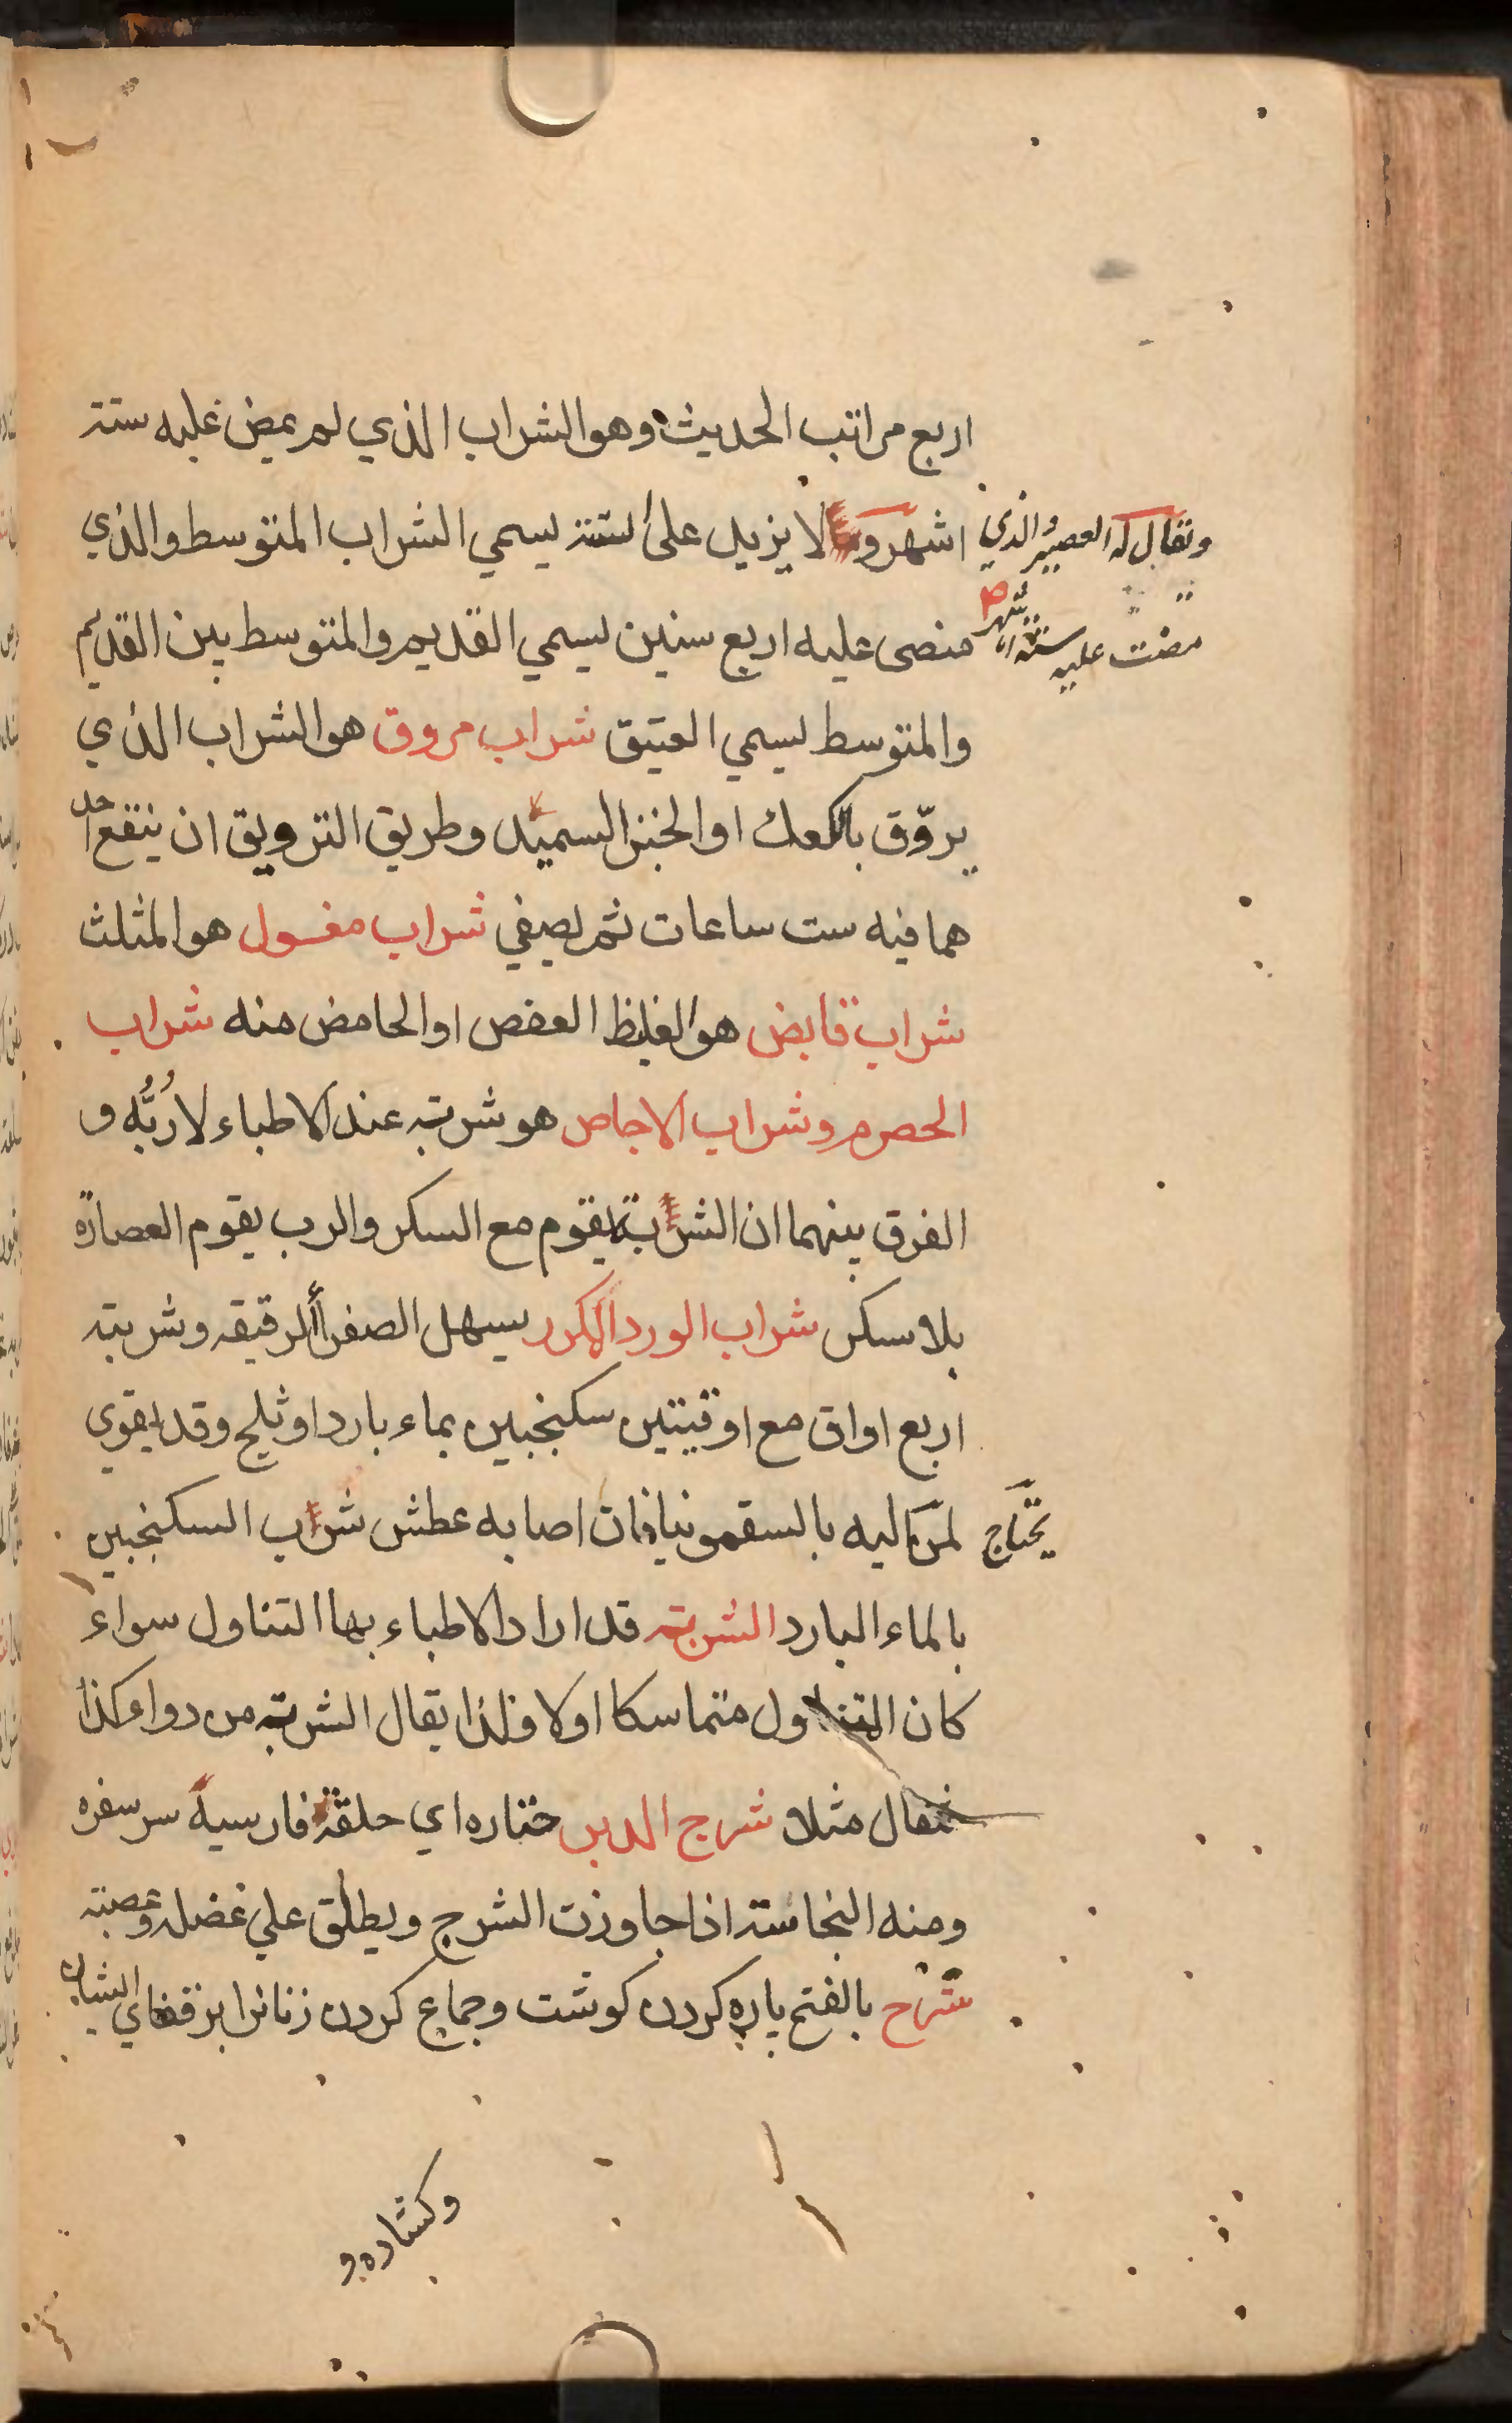 اربع مراتب الحديث وهو الشراب الذي لم يمض عليه ستة
اشهر و لا يزيد على ستة يسمي الشراب المتوسط والذي
ويقال له العصير والذي
مضت عليه ستة اشهر
منضى عليه اربع سنين يسمي القديم والمتوسط بين القديم
والمتوسط يسمي العتيق شراب مروق هو الشراب الذي
يروّق بالكعك او الخبز السميد وطريق الترويق ان ينقع احد
هما فيه ست ساعات ثم يصفي شراب مغسول هو المثلث
شراب قابض هو الغليظ العفص او الحامض منه شراب
الحصرم وشراب الاجاص هو شربته عند الاطباء لا رُبُّه و
الفرق بينهما ان الشربة يقوم مع السكر والرب يقوم العصارة
بلا سكر شراب الورد المكرر يسهل الصفرأ الرقيقه وشربته
اربع اواق مع اوقيتين سكنجبين بماء بارد او ثلج وقد يقوي
يحتاج
لمن اليه بالسقمونيا فان اصابه عطش شرب السكنجبين
بالماء البارد الشربته قد اراد الاطباء بها التناول سواء
كان التناول متماسكا اولا فلذا يقال الشربة من دواء كذا
مثقال مثلا شرج الدبر ختاره اي حلقة فارسية سر سفره
ومنه النجاسة اذا جاوزت الشرج ويطلق علي عضله وعصبته
شرح بالفتح پاره كردن كوشت وجماع كردن زنانرا بر قفاي ايشان
وكشاده و